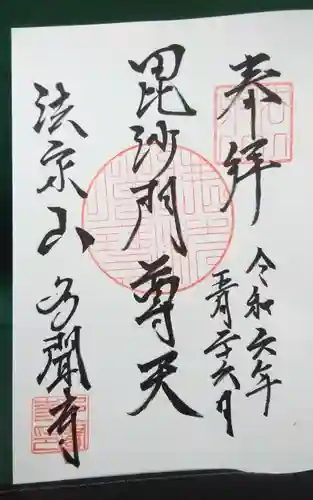 奉拝
令和六年
五月二十六日
毘沙門尊天
法楽山
多聞寺